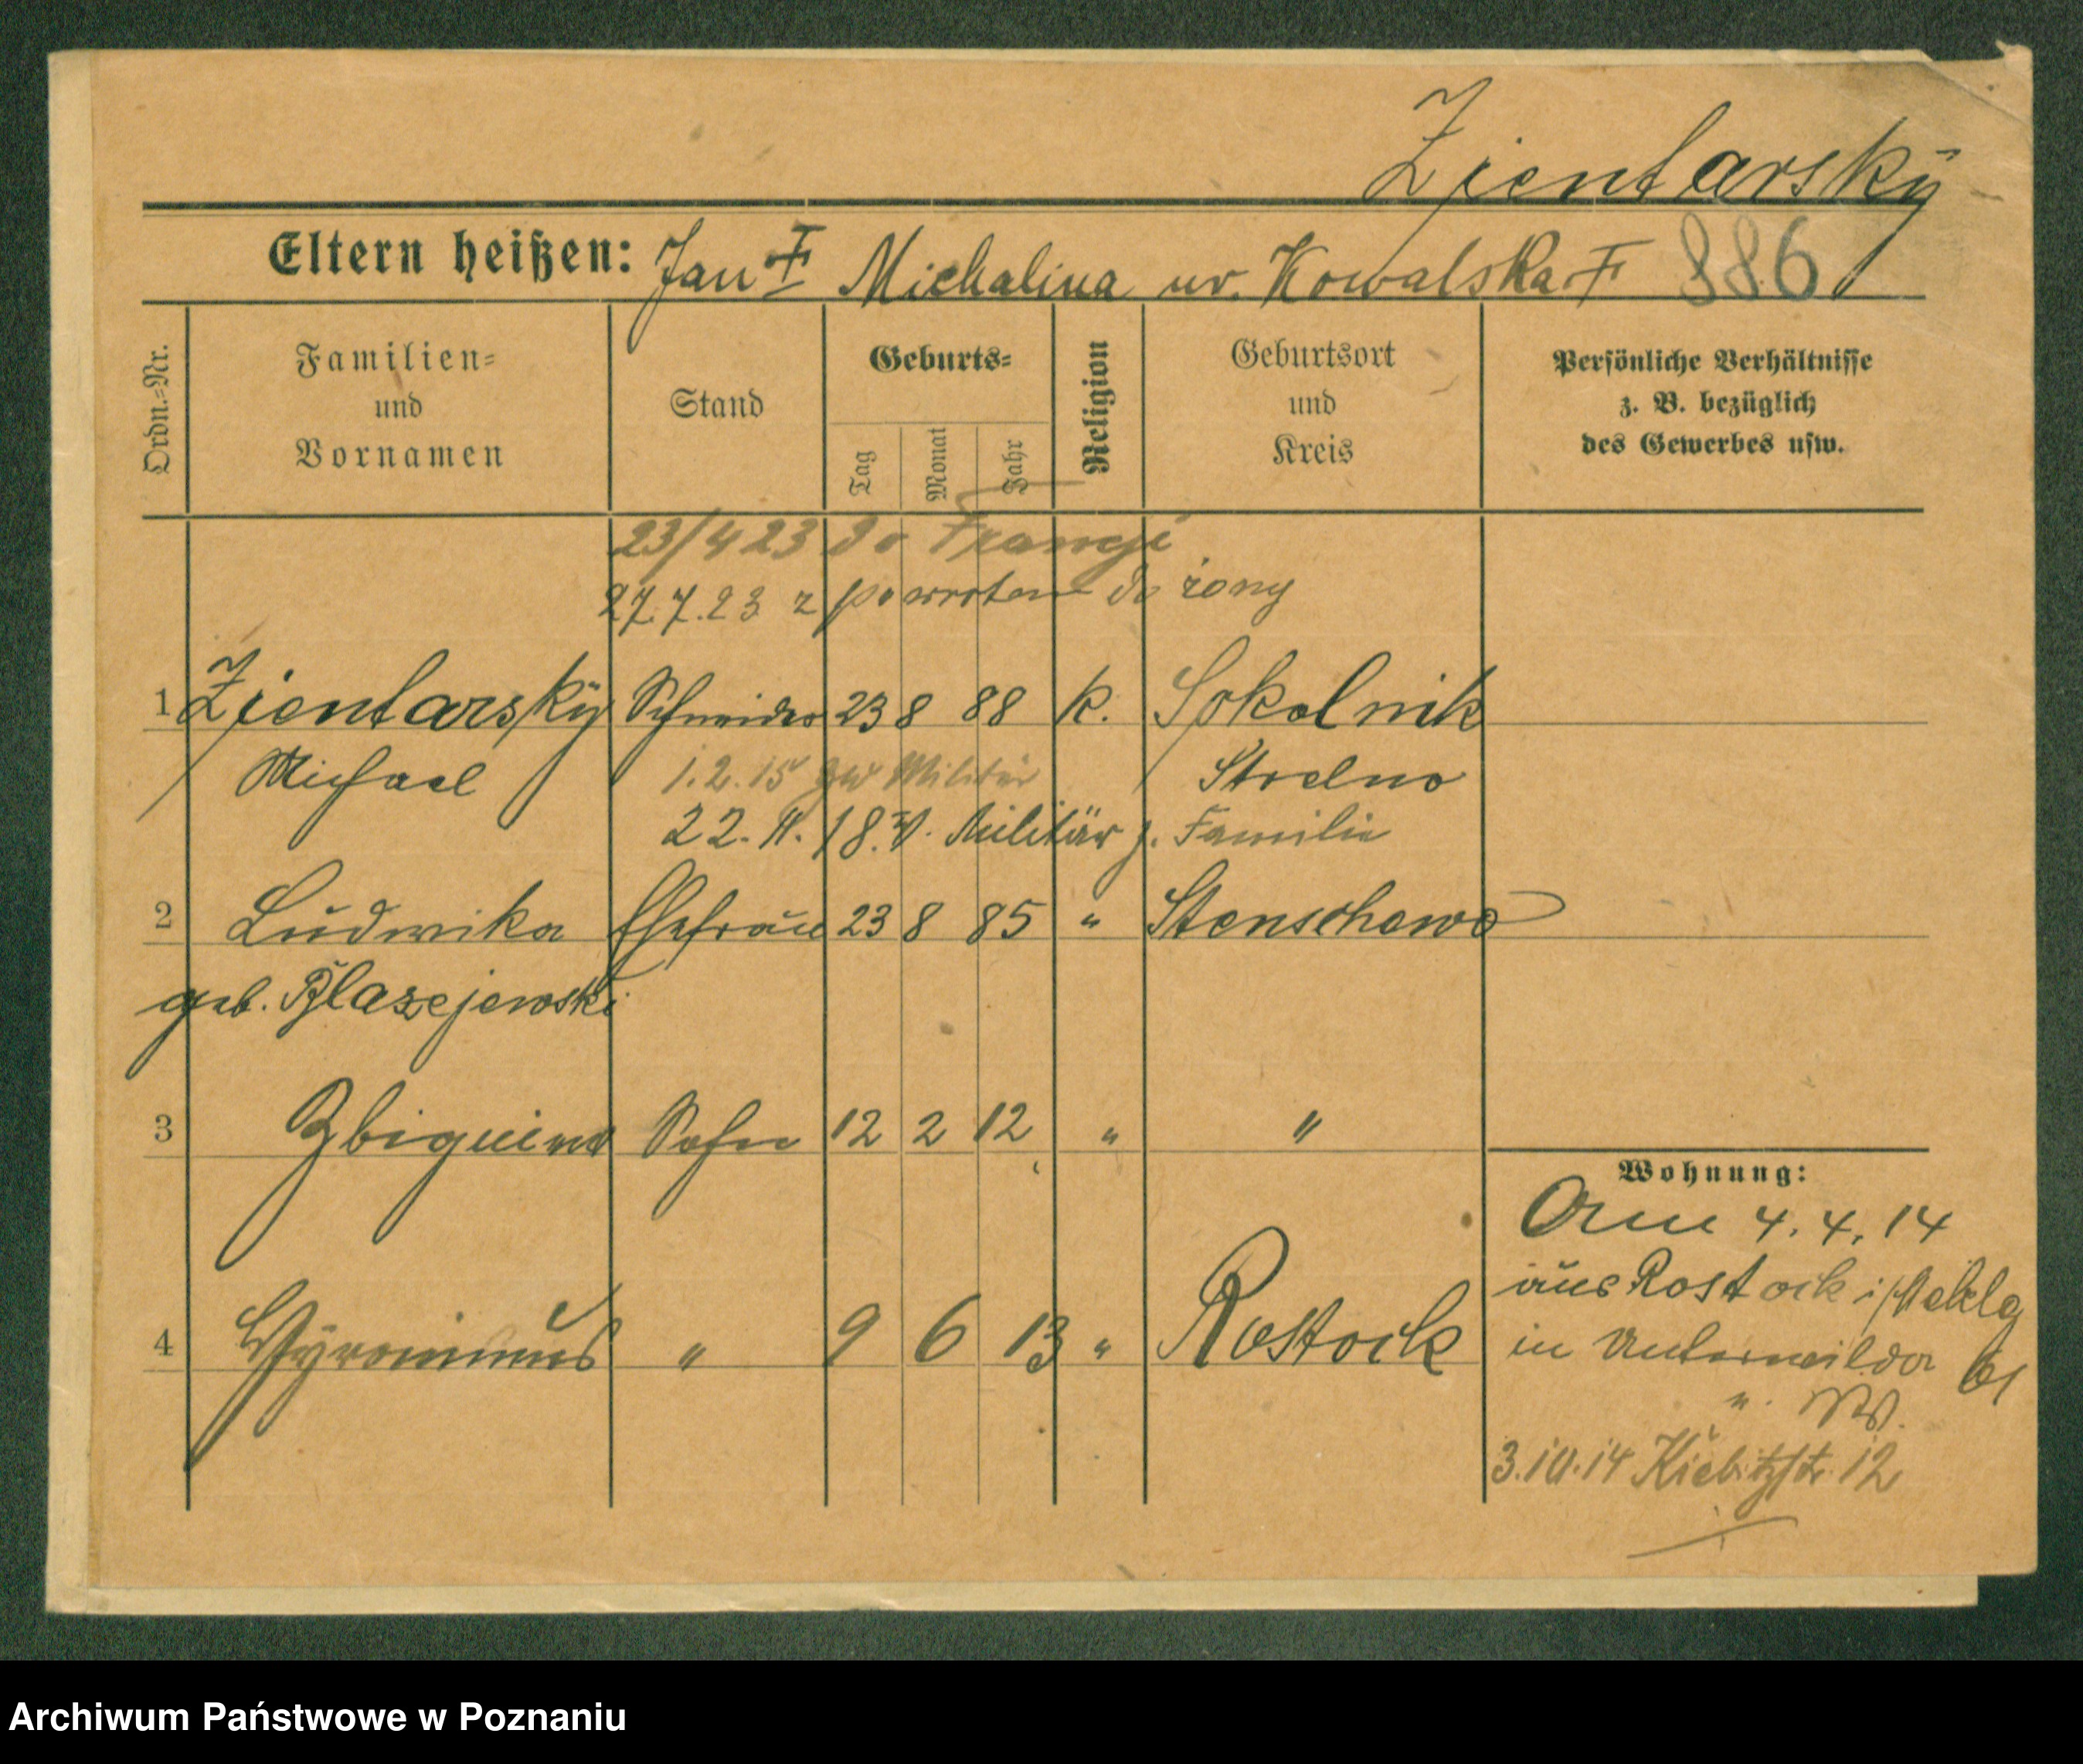 Zientarsky
Eltern heißen: Jan † Michalina ur. Kowalska † 886
Ordn.=Nr.
Familien=
und
Vornamen
Stand
Geburts=
Tag
Monat
Jahr
Religion
Geburtsort
und
Kreis
Persönliche Verhältnisse
z. B. bezüglich
des Gewerbes usw.
23/4 23 do Francji
27.7.23 z powrotem do żony
1 Zientarsky Schneider 23 8 88 k. Sokolnik
Michael Strelno
1.2.15 zum Militär
22.11.18. v. Militär z. Familie
2 Ludwika Ehefrau 23 8 85 " Stenschewo
geb. Blazejewski
3 Zbigniew Sohn 12 2 12 " "
4 Hyronimus " 9 6 13 " Rostock
Wohnung:
4. 4. 14
aus Rostock i/Meklg
in Unterwilda 61
3.10.14 Kiebitzstr. 12
Archiwum Państwowe w Poznaniu